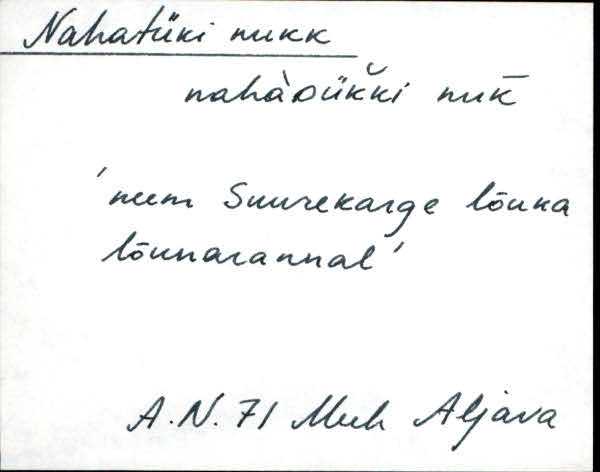 Nahatüki nukk
nahàDük̆ki nuk̄
'neem Suurekarge lõuna
lõunarannal'
A.N. 71 Muh Aljava